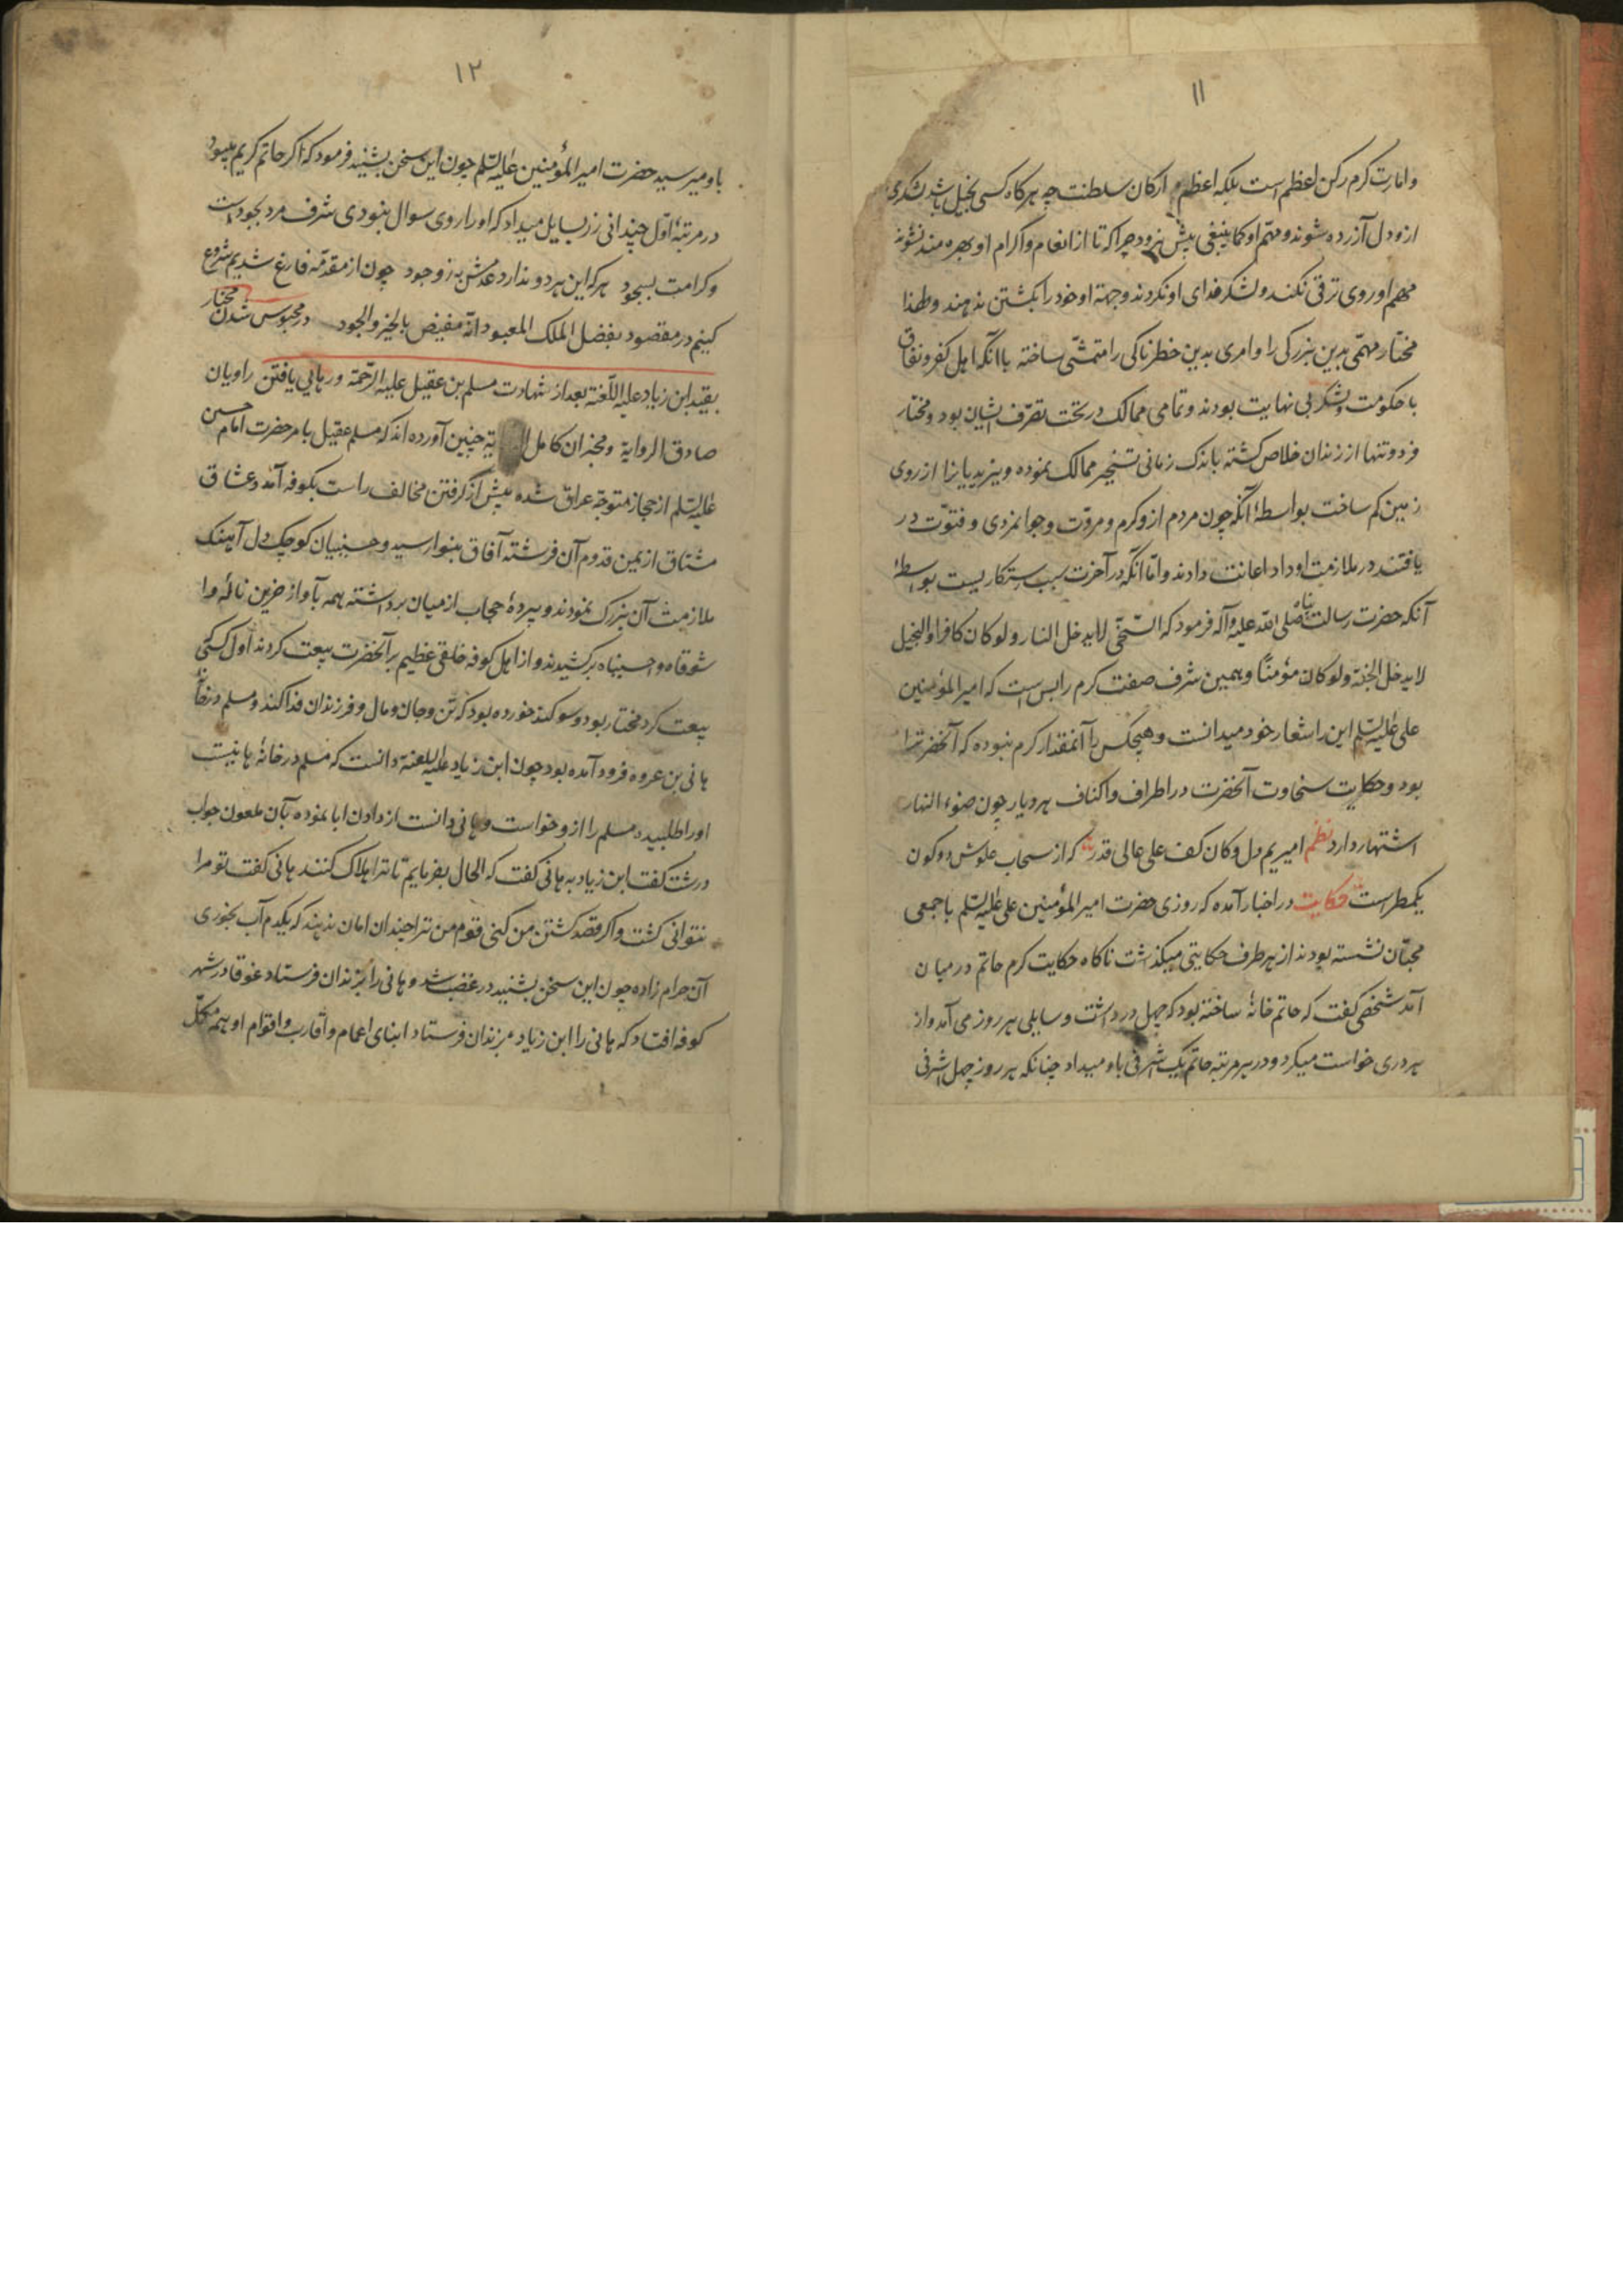 ۱۱
وامارت کرم رکن اعظم است بلکه اعظم ارکان سلطنت چه هرکاه کسی بخیل باشد لشکری
ازو دل آزرده شوند و مهمّ او کما ینبغی پیش نرود چرا که تا از انعام و اکرام او بهره مند نشوند
مهم او روی ترقی نکند و لشکر فدای او نکردند و جهة او خود را بکشتن ندهند و لهذا
مختار مهمّی بدین بزرکی را و امری بدین خطرناکی را متمشّی ساخته باانکه اهل کفر و نفاق
با حکومت و لشکر بی نهایت بودند و تمامی ممالک در تحت تصرّف ایشان بود و مختار
فرد و تنها از زندان خلاص کشته باندک زمانی تسخیر ممالک نموده و یزیدیانرا از روی
زمین کم ساخت بواسطهٔ آنکه چون مردم ازو کرم و مروّت و جوانمردی و فتوّت در
یافتند در ملازمت او داد اعانت دادند و امّا انکه در آخرت سبب رستکاریست بواسطهٔ
آنکه حضرت رسالت پناه صلی الله علیه و آله فرمود که السّخیّ لا یدخل النار ولو کان کافرا والبخیل
لا یدخل الجنّة ولو کان مؤمنًا و همین شرف صفت کرم را بس است که امیر المؤمنین
علی علیه السّلم این را شعار خود میدانست و هیچکس را آنمقدار کرم نبوده که آنحضرترا
بود و حکایت سخاوت آنحضرت در اطراف و اکناف هر دیار چون ضوء النهار
اشتهار دارد نظم امیر یم دل و کان کف علی عالی قدر که از سحاب علوش دو کون
یکمطر است حکایت در اخبار آمده که روزی حضرت امیر المؤمنین علی علیه السّلم با جمعی
محبّان نشسته بودند از هر طرف حکایتی میکذشت ناکاه حکایت کرم حاتم در میان
آمد شخصی کفت که حاتم خانهٔ ساخته بود که چهل در داشت و سایلی هر روز می آمد و از
هر دری خواست میکرد و در هر مرتبه حاتم یک اشرفی باو میداد چنانکه هر روز چهل اشرفی
۱۲
باو میرسید حضرت امیر المؤمنین علیه السّلم چون این سخن بشنید فرمود که اکر حاتم کریم میبود
در مرتبهٔ اوّل چندانی زر بسایل میداد که او را روی سوال نبودی شرف مرد بجود است
و کرامت بسجود هر که این هر دو ندارد عدمش به ز وجود چون از مقدّمه فارغ شدیم شروع
کنیم در مقصود بفضل الملک المعبود انّه مفیض بالخیر و الجود در محبوس شدن مختار
بقید ابن زیاد علیه اللّعنة بعد از شهادت مسلم بن عقیل علیه الرّحمة و رهایی یافتن راویان
صادق الروایة و مخبران کامل یة چنین آورده اند که مسلم عقیل بامر حضرت امام حسین
علیه السّلم از حجاز متوجّه عراق شده پیش از کرفتن مخالف راست بکوفه آمد و عشاق
مشتاق از یمن قدوم آن فرشته آفاق بنوا رسید و حسینیان کوچک دل آهنک
ملازمت آن بزرک نمودند و پردهٔ حجاب از میان برداشته همه بآواز حزین نالهٔ وا
شوقاه و احسیناه برکشیدند و از اهل کوفه خلقی عظیم بر آنحضرت بیعت کردند اول کسی
بیعت کرد مختار بود و سوکند خورده بود که تن و جان و مال و فرزندان فدا کند و مسلم در خانهٔ
هانی بن عروه فرود آمده بود چون ابن زیاد علیه اللعنة دانست که مسلم در خانهٔ هانیست
او را طلبید و مسلم را ازو خواست و هانی دانست از دادن ابا نموده بآن ملعون جواب
درشت کفت ابن زیاد به هانی کفت که الحال بفرمایم تا ترا هلاک کنند هانی کفت تو مرا
نتوانی کشت و اکر قصد کشتن من کنی قوم من ترا چندان امان ندهند که یکدم آب بخوری
آن حرام زاده چون این سخن بشنید در غضب شد و هانی را بزندان فرستاد غوغا در شهر
کوفه افتاد که هانی را ابن زیاد بزندان فرستاد ابنای اعمام و اقارب و اقوام او همه مکمّل